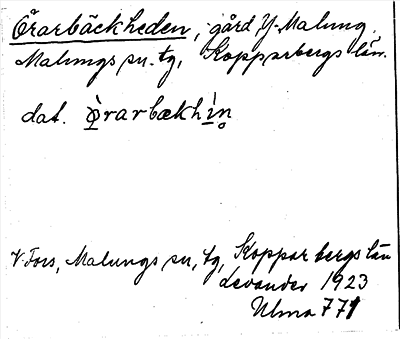 Örarbäckheden, gård, Y. Malung.
Malungs sn. tg, Kopparbergs län.
dat. ø̀rarbækhìn̥
V Fors, Malungs sn, tg, Kopparbergs län
Levander 1923
Ulma 771